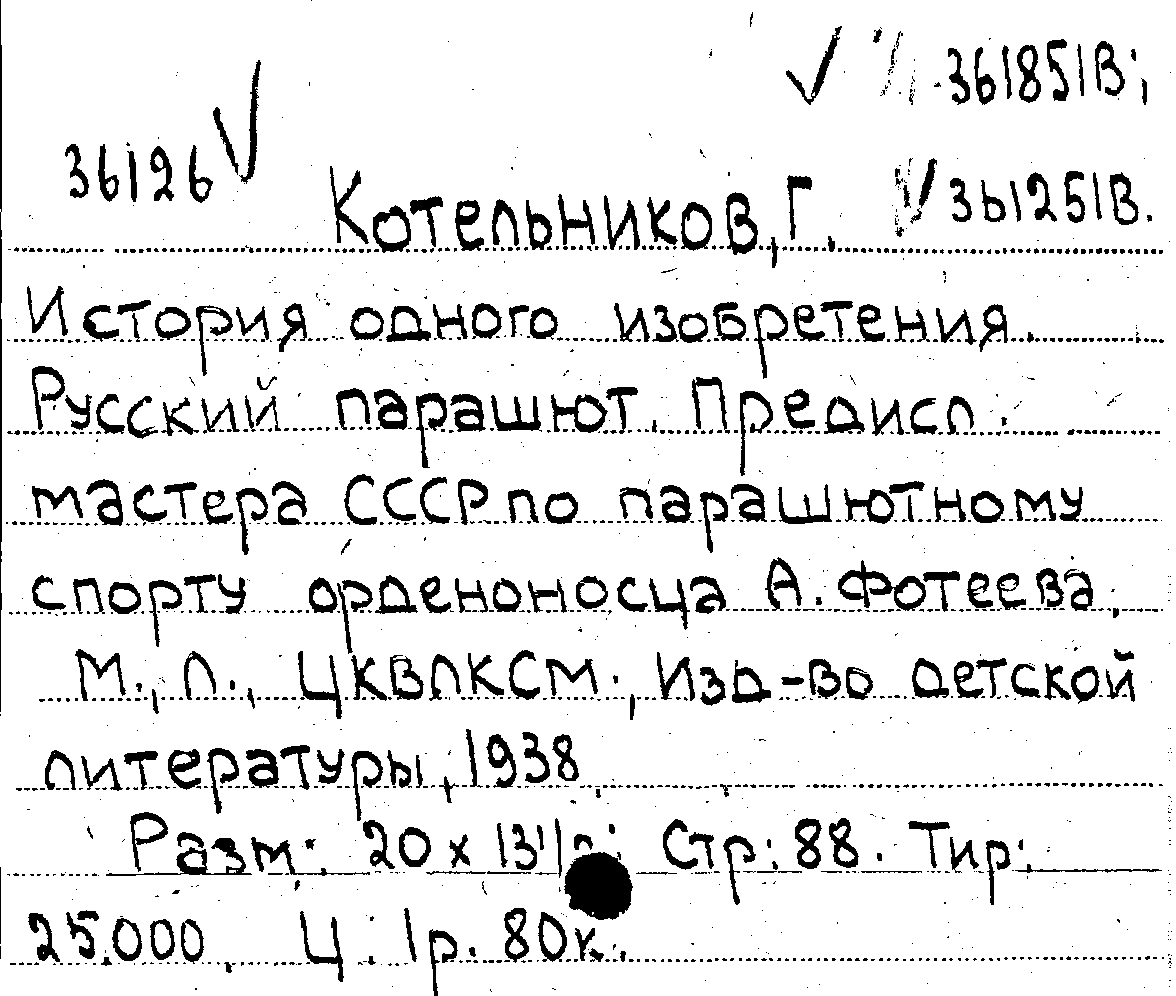 361851В;
36126
Котельников, Г. 361251В.
История одного изобретения.
Русский парашют. Предисл.
мастера СССР по парашютному
спорту орденоносца А. Фотеева.
М., Л., ЦКВЛКСМ., Изд-во детской
литературы, 1938
Разм: 20 х Стр: 88. Тир:
25.000. Ц. 1р. 80к.